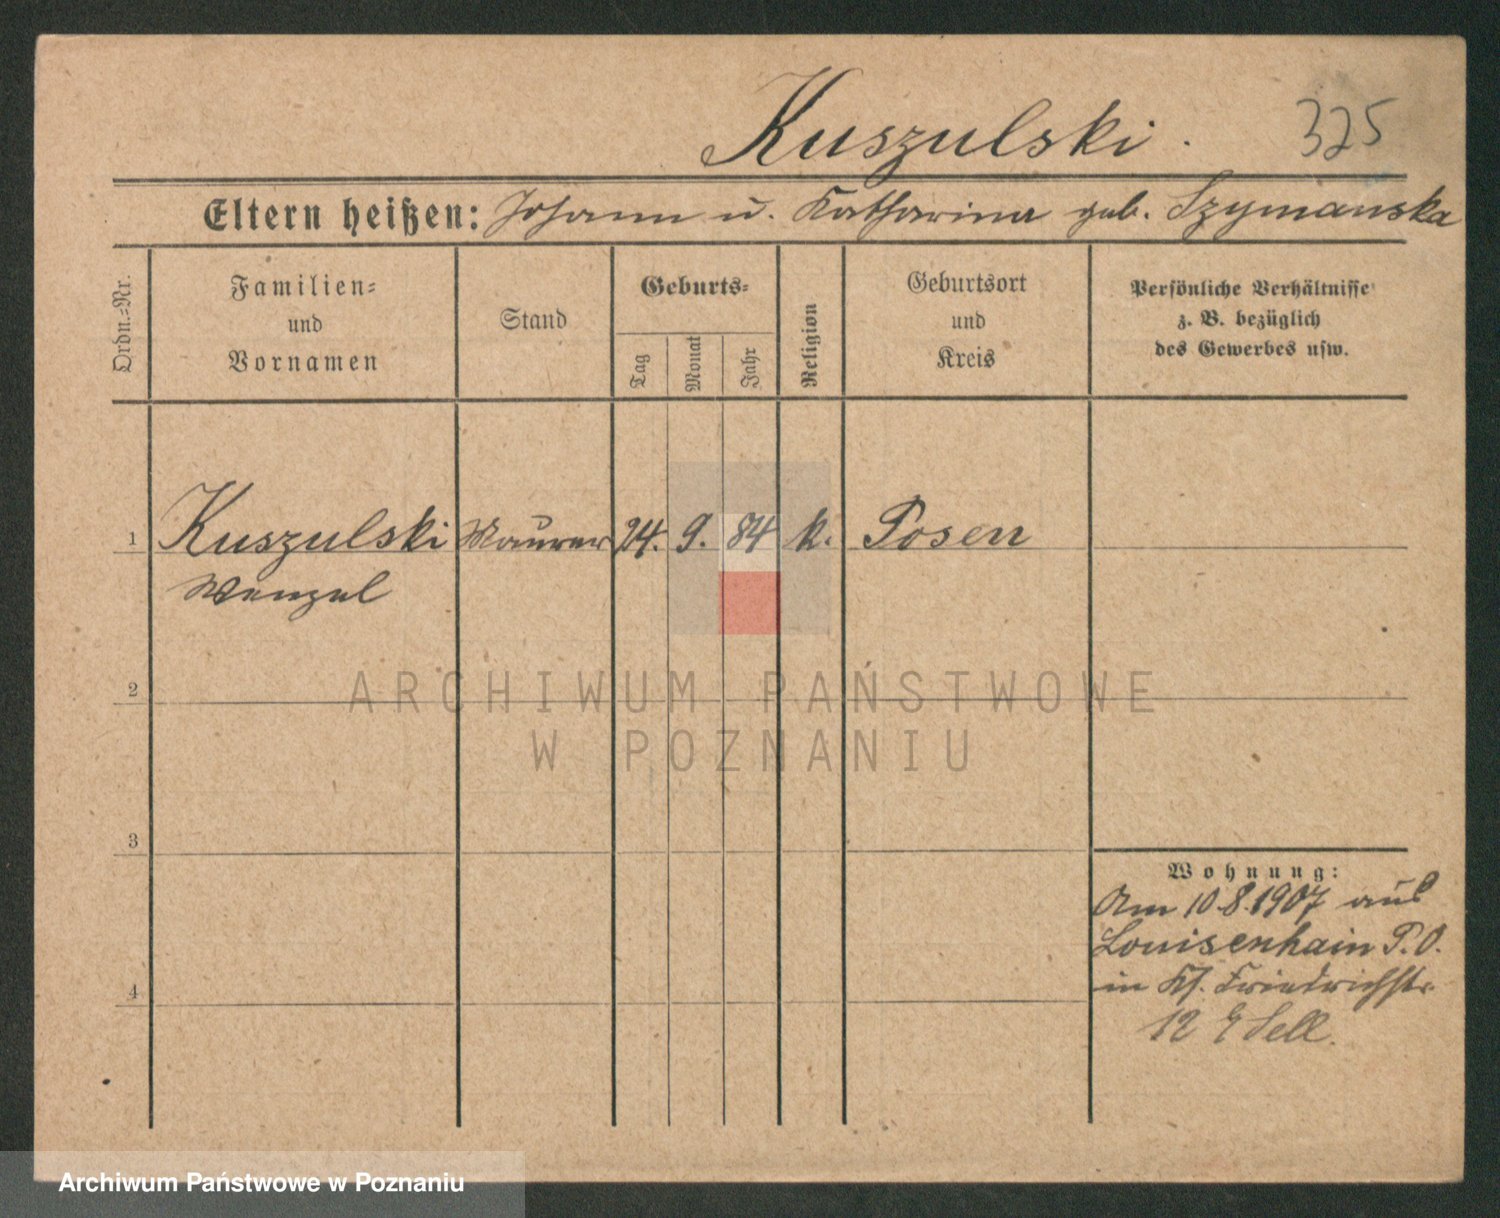 Kuszulski. 325
Eltern heißen: Johann u. Katharina geb. Szymanska
Ordn.-Nr.
Familien-
und
Vornamen
Stand
Geburts-
Tag
Monat
Jahr
Religion
Geburtsort
und
Kreis
Persönliche Verhältnisse
z. B. bezüglich
des Gewerbes usw.
1 Kuszulski Maurer 24. 9. 84 k. Posen
Wenzel
2
ARCHIWUM PAŃSTWOWE
W POZNANIU
3
Wohnung:
Am 10.8.1907 aus
Louisenhain P.O.
in Friedrichstr.
4
12 Sell.
Archiwum Państwowe w Poznaniu